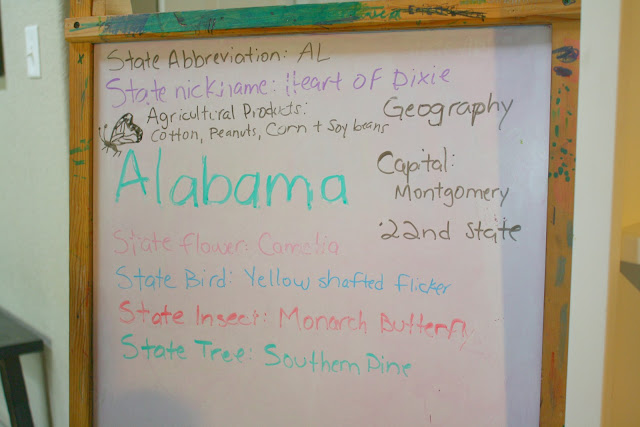 State Abbreviation: AL
State nickname: Heart of Dixie
Agricultural Products:
Cotton, Peanuts, Corn + Soy beans
Geography
Alabama
Capital:
Montgomery
22nd state
State flower: Camelia
State Bird: Yellow shafted flicker
State Insect: Monarch Butterfly
State Tree: Southern Pine